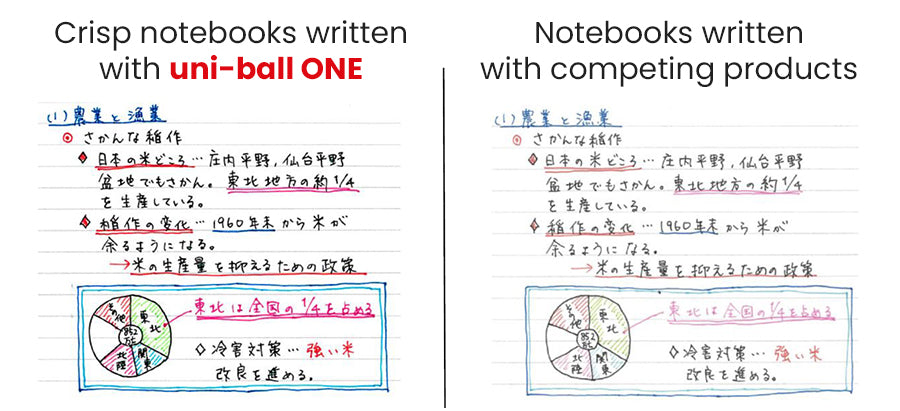 Crisp notebooks written
with uni-ball ONE
(1)農業と漁業
さかんな稲作
日本の米どころ…庄内平野,仙台平野
盆地でもさかん。東北地方の約1/4
を生産している。
稲作の変化…1960年末から米が
余るようになる。
→米の生産量を抑えるための政策
その他
東北
852万t
北陸
関東
東北は全国の1/4を占める
◇冷害対策…強い米
改良を進める。
Notebooks written
with competing products
(1)農業と漁業
さかんな稲作
日本の米どころ…庄内平野,仙台平野
盆地でもさかん。東北地方の約1/4
を生産している。
稲作の変化…1960年末から米が
余るようになる。
→米の生産量を抑えるための政策
その他
東北
852万t
北陸
関東
東北は全国の1/4を占める
◇冷害対策…強い米
改良を進める。